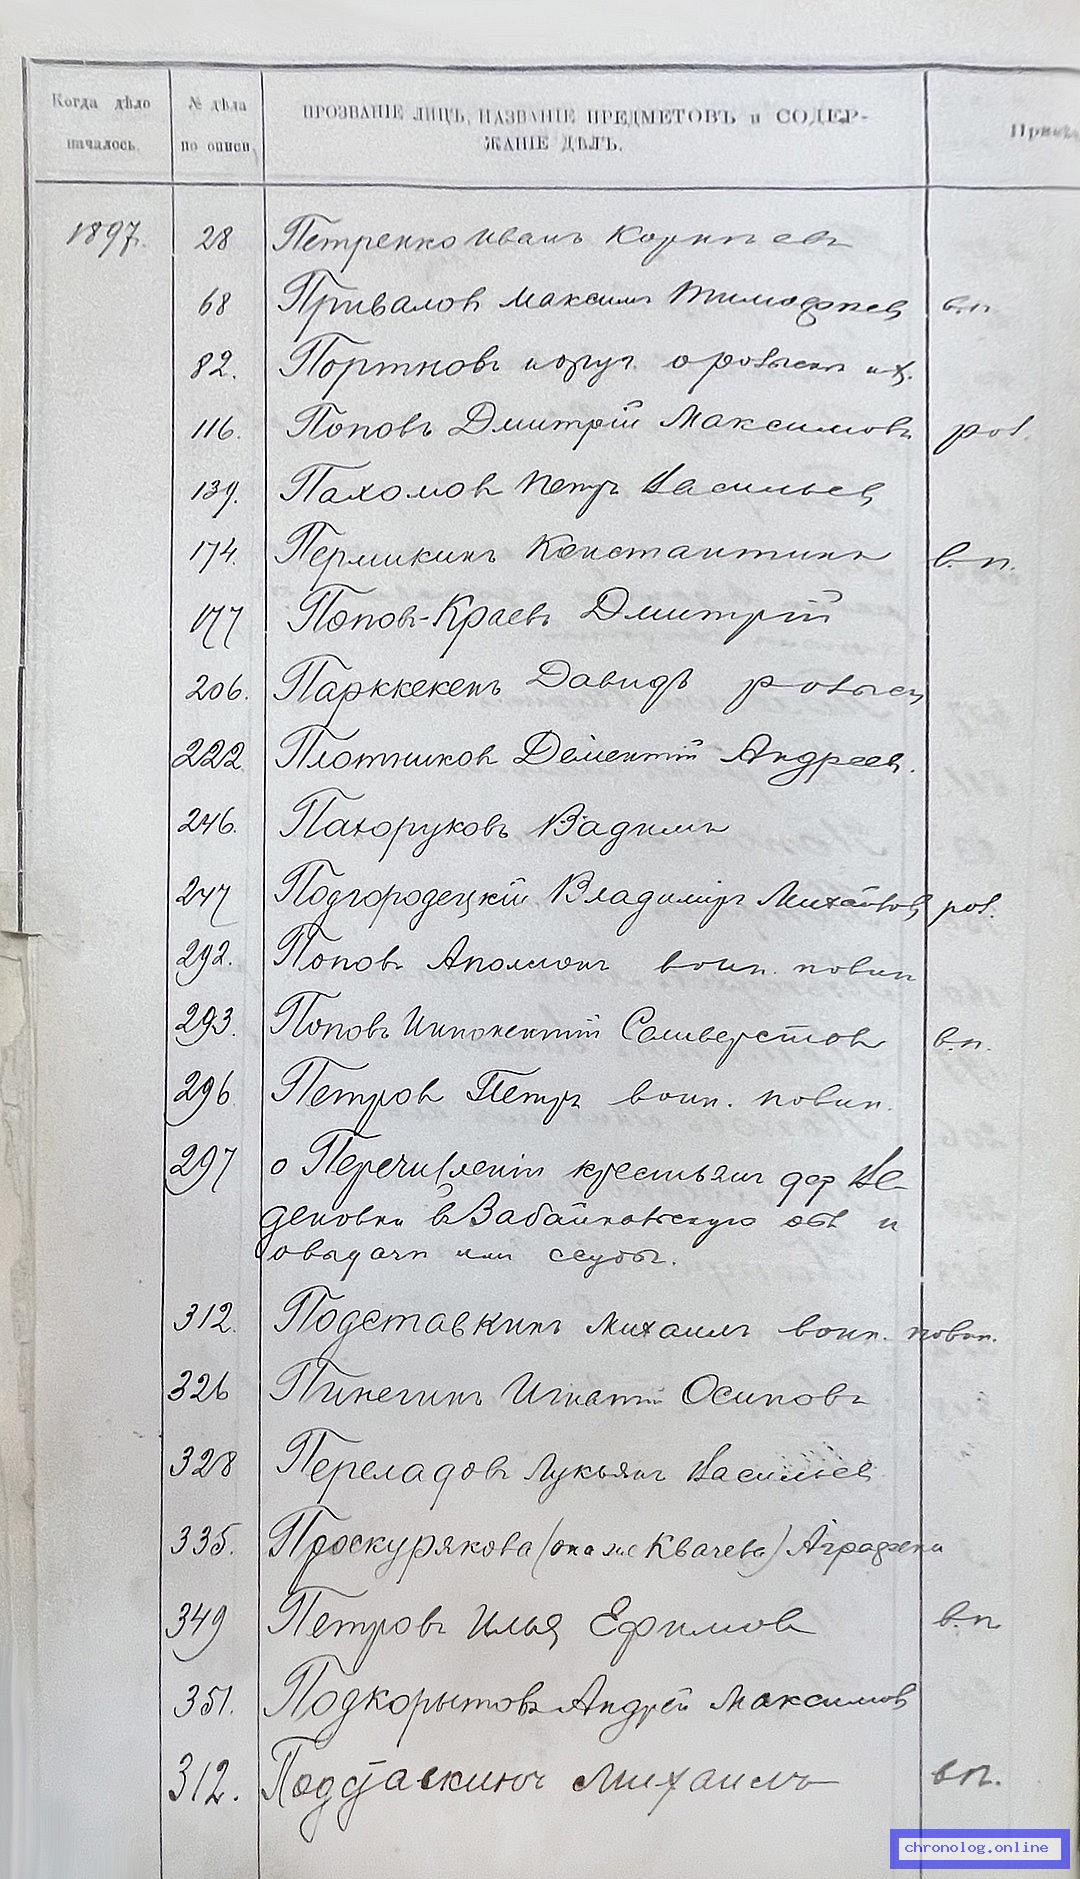 Когда дѣло началось.
№ дѣла по описи
ПРОЗВАНІЕ ЛИЦЪ, НАЗВАНІЕ ПРЕДМЕТОВЪ и СОДЕР-
ЖАНІЕ ДѢЛЪ.
1897. 28 Петренко Иванъ Корнѣевъ
68 Привалов Максимъ Тимофеев в.п.
82. Портновъ о розыскѣ их.
116. Поповъ Дмитрій Максимовъ роз.
139. Пахомов Петръ Васильев
174. Пермикинъ Константинъ в.п.
177 Попов-Краевъ Дмитрій
206. Парккекенъ Давидъ розыск
222 Плотников Дементій Андреев.
246. Пахоруковъ Вадимъ
247 Подгородецкій Владиміръ Михайлов роз.
292. Поповъ Аполлонъ воин. повин
293. Поповъ Иннокентій Селиверстовъ в.п.
296 Петров Петръ воин. повин.
297 о Перечисленіи крестьянъ дер Ве-
деновки в Забайкальскую обл и
о выдачи им ссуды.
312. Подставкинъ Михаилъ воин. повин.
326 Пинегинъ Игнатій Осиповъ
328 Переладовъ Лукьянъ Васильев
335. Проскурякова (она же Квачева) Аграфена
349 Петровъ Илья Ефимов в.п
351. Подкорытовъ Андрей Максимов
312. Подставкинъ Михаилъ вп.
chronolog.online